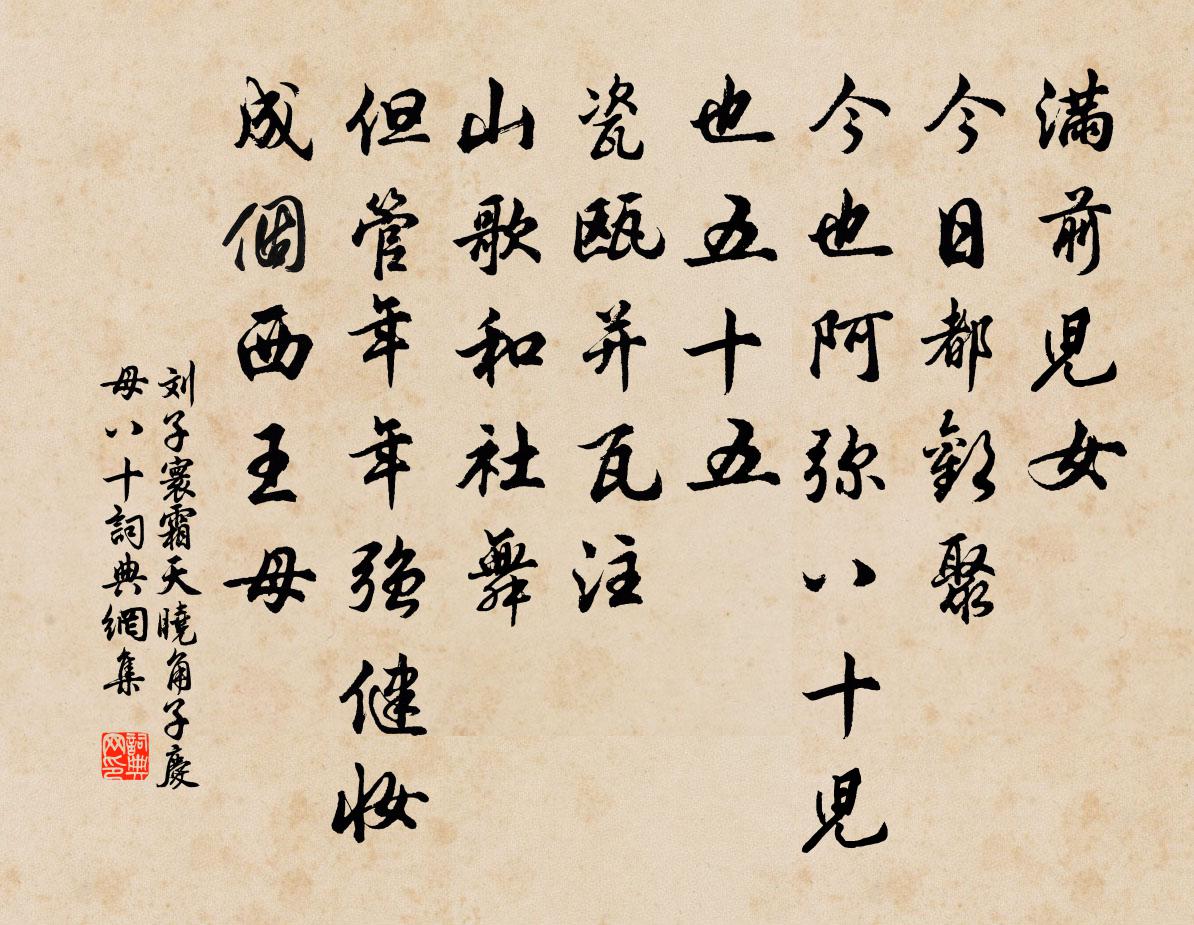 满前児女
今日都歡聚
今也阿弥八十児
也五十五
瓷瓯并瓦注
山歌和社舞
但管年年强健妆
成個西王母
刘子寰霜天曉角子慶
母八十詞典網集
詞典网印